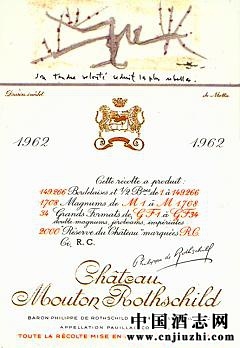 sa tendre volonté séduit la plus rebelle.
Dessin inédit de Matta
1962 1962
Cette récolte a produit:
149.266 Bordelaises et 1/2 Bses de 1 à 149.266
1708 Magnums de M 1 à M 1708
34 Grands Formats de GF 1 à GF 34
double magnums, jéroboams, impériales
2000 "Réserve du Château" marquées R.C.
Ce, R.C.
Philippe de Rothschild
Château
Mouton Rothschild
BARON PHILIPPE DE ROTHSCHILD
APPELLATION PAUILLAC
TOUTE LA RÉCOLTE MISE EN
中国酒志网
www.cnjiuzhi.com